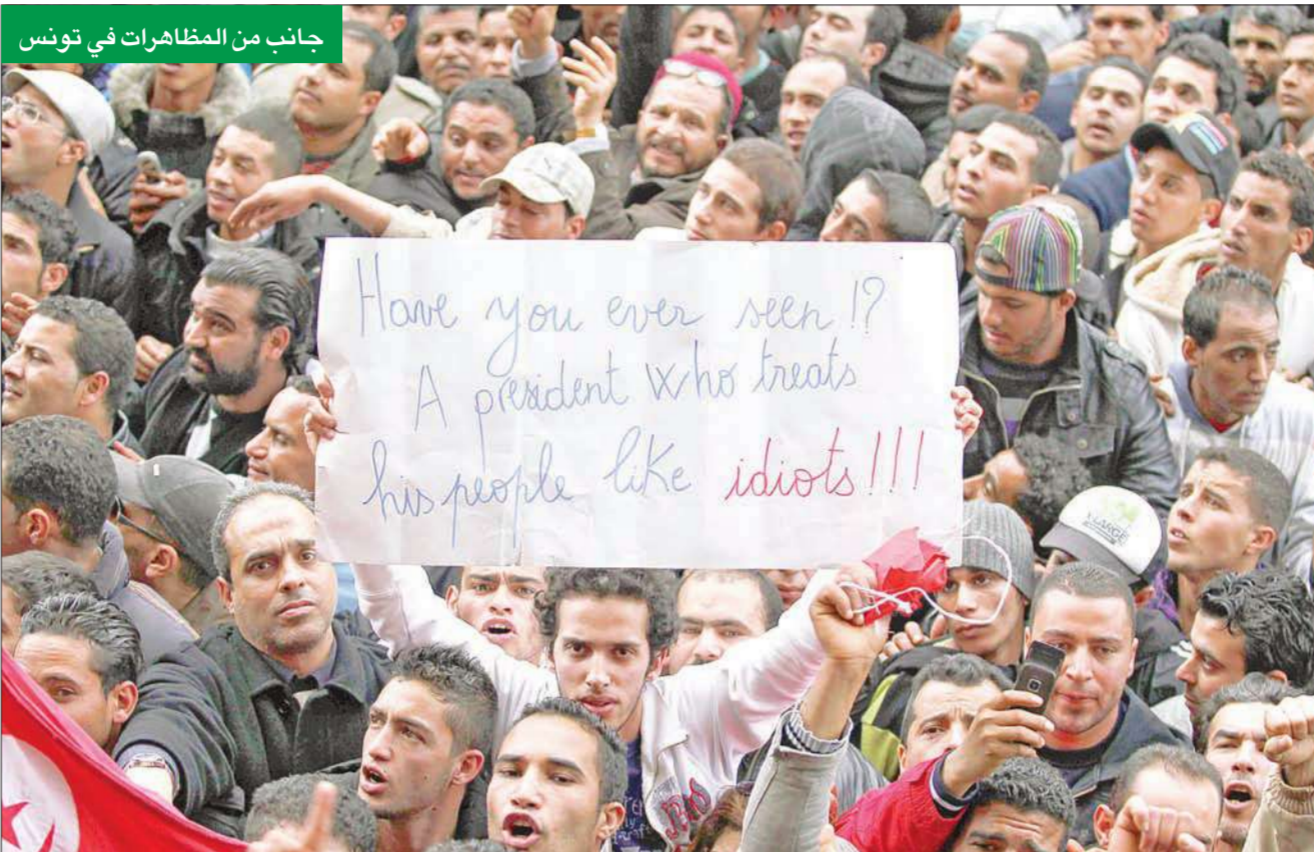 جانب من المظاهرات في تونس
Have you ever seen !?
A president who treats
his people like idiots!!!
X-LARGE